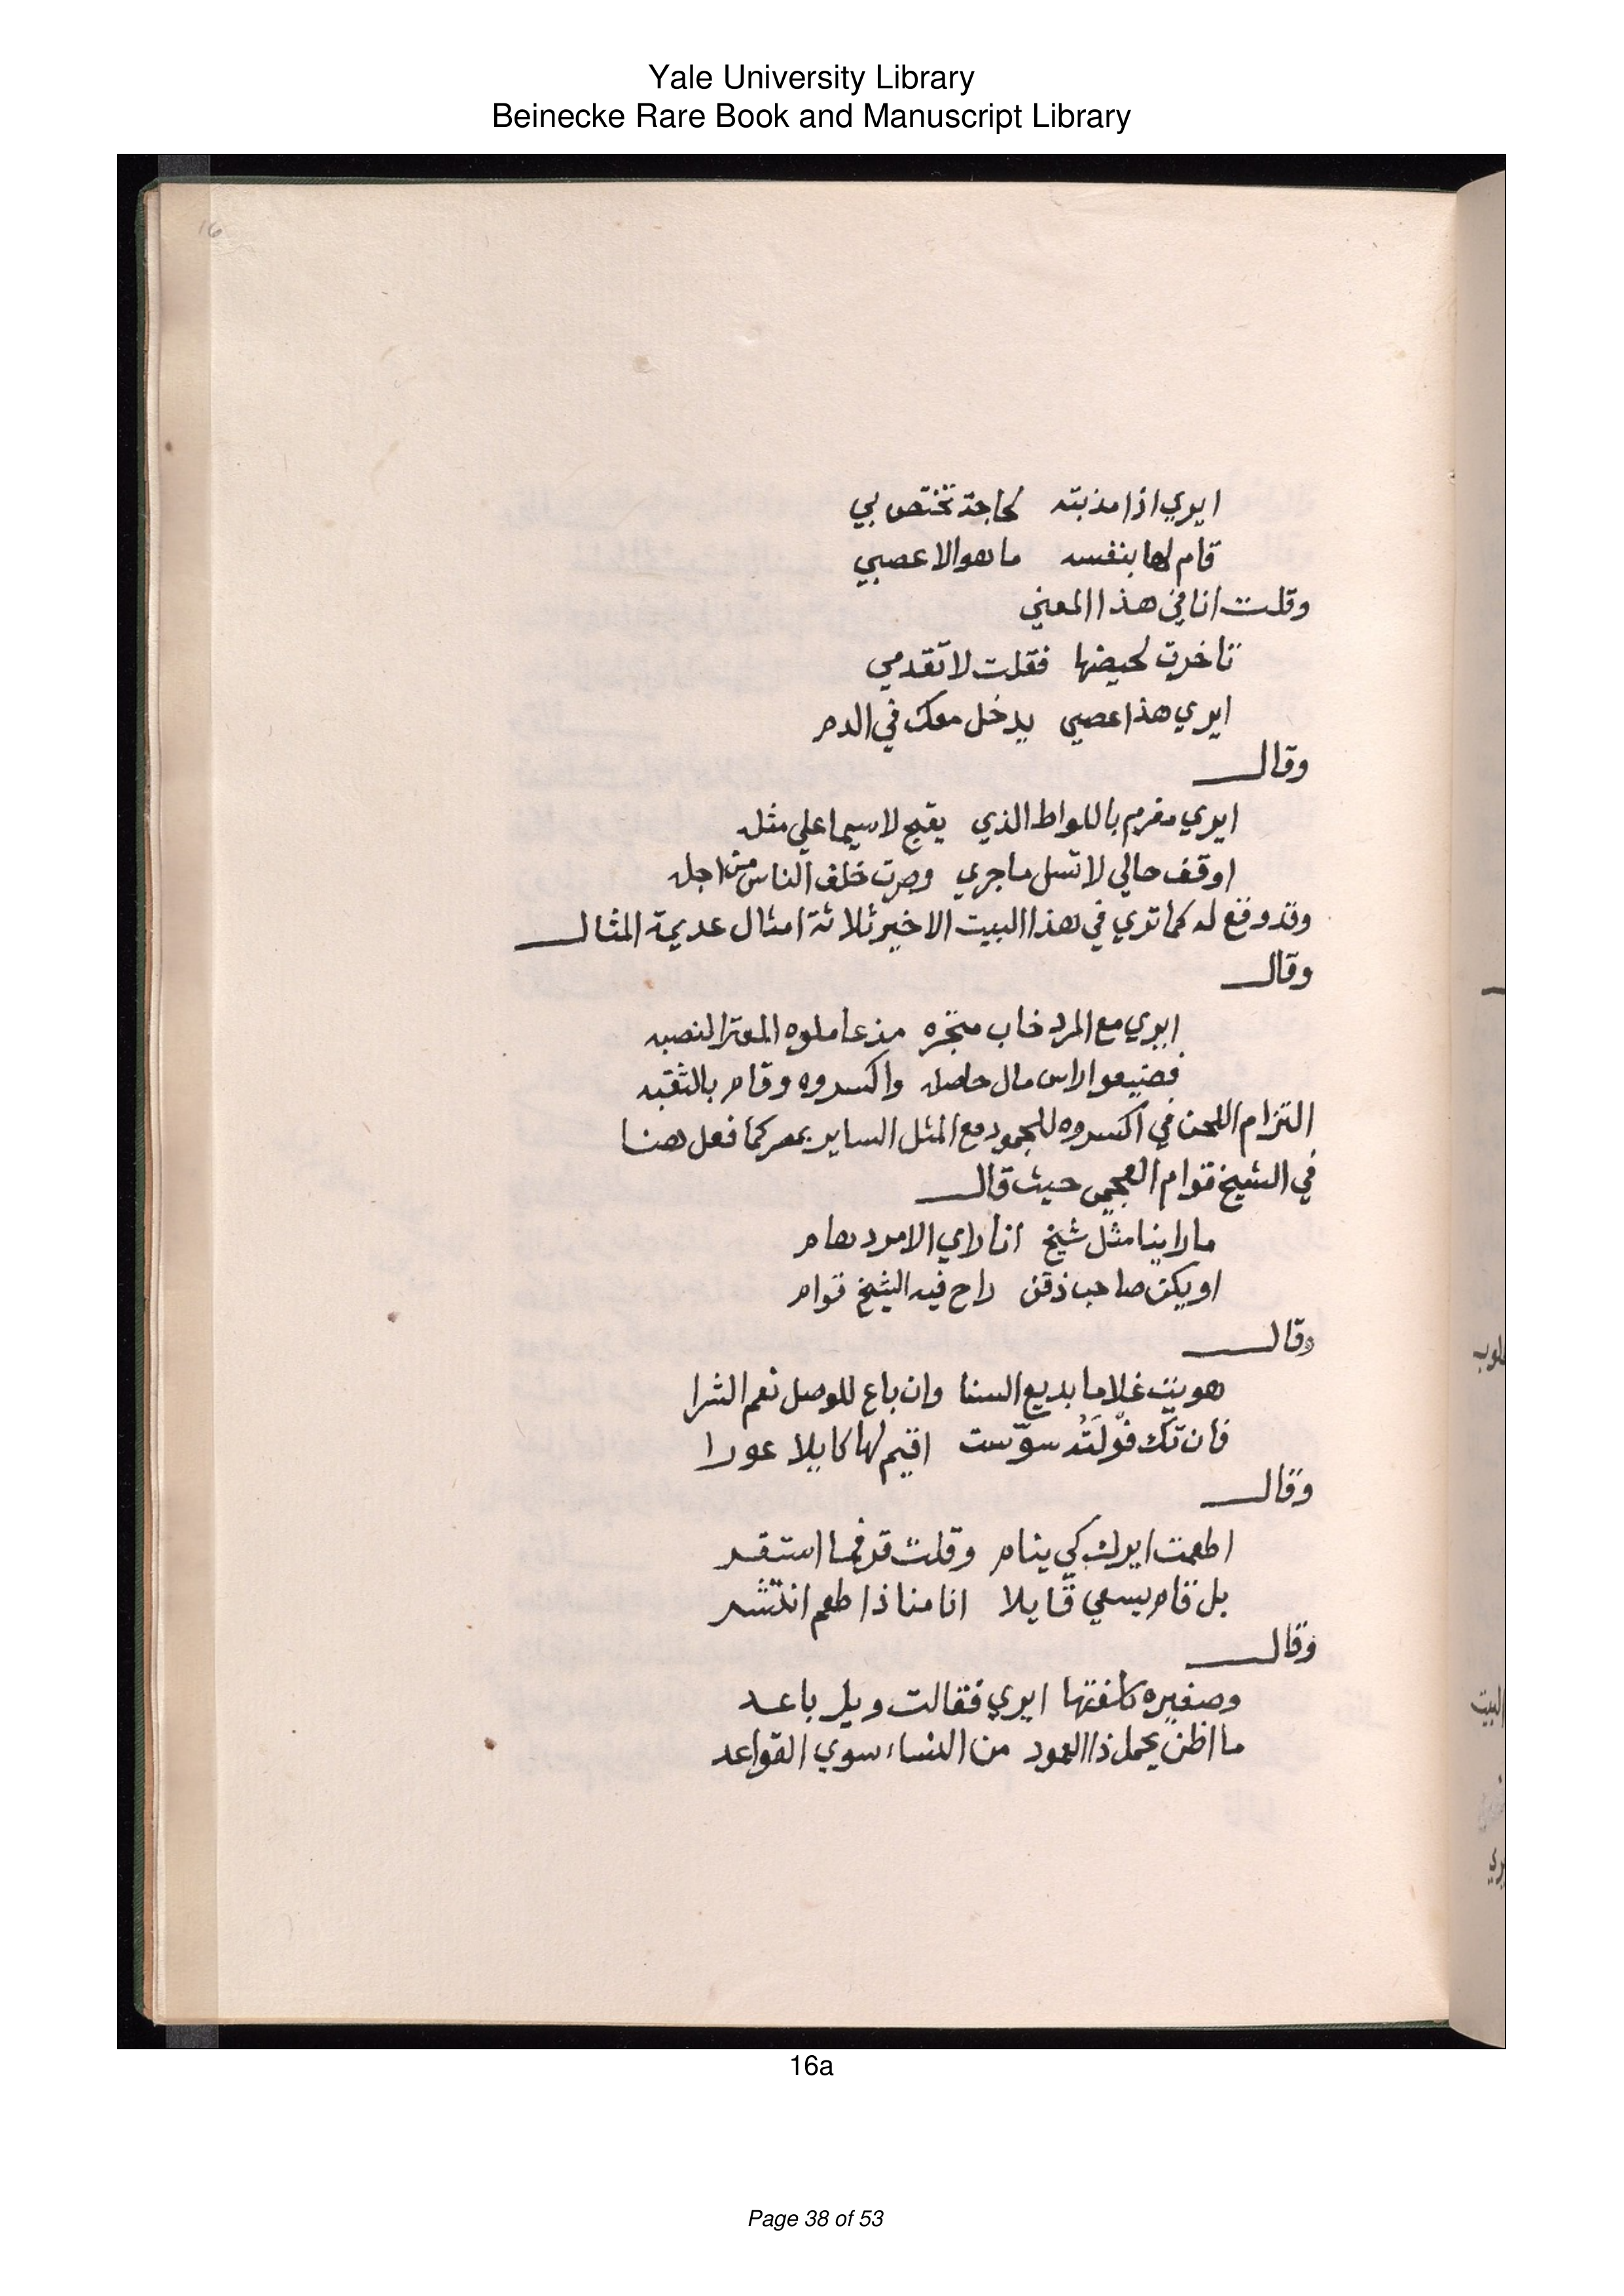 Yale University Library
Beinecke Rare Book and Manuscript Library
16
ايري اذا مذبته لحاجة تختص بي
قام لها بنفسه ما هو الا عصبي
وقلت انا في هذا المعني
تاخرت لحيضها فقلت لا تقدمي
ايري هذا عصبي يدخل معك في الدم
وقال
ايري مغرم باللواط الذي يقبح لا سيما علي مثله
اوقف حالي لا تسل ما جري وصرت خلف الناس من اجله
وقد وقع له كما تري في هذا البيت الاخير ثلاثة امثال عديمة المثال
وقال
ايري مع المرد خاب متجره مذ عاملوه المعتر النصبه
فضيعوا راس مال حاصله واكسروه وقام بالثقبه
التزام اللحن في اكسروه للجمود مع المثل الساير بمصر كما فعل هنا
في الشيخ قوام العجمي حيث قال
ما راينا مثل شيخ انا راي الامرد هام
او يكن صاحب ذقن راح فيه الشيخ قوام
وقال
هويت غلاما بديع السنا وان باع للوصل نعم الشرا
فان تك فولته سوست اقيم لها كايلا عورا
وقال
اطعمت ايرك كي ينام وقلت قد فما استقر
بل قام يسعي قايلا انا منا ذا طعم انتشر
وقال
وصغيره كلفتها ايري فقالت ويل باعد
ما اظن يحمل ذا العمود من النساء سوي القواعد
16a
Page 38 of 53